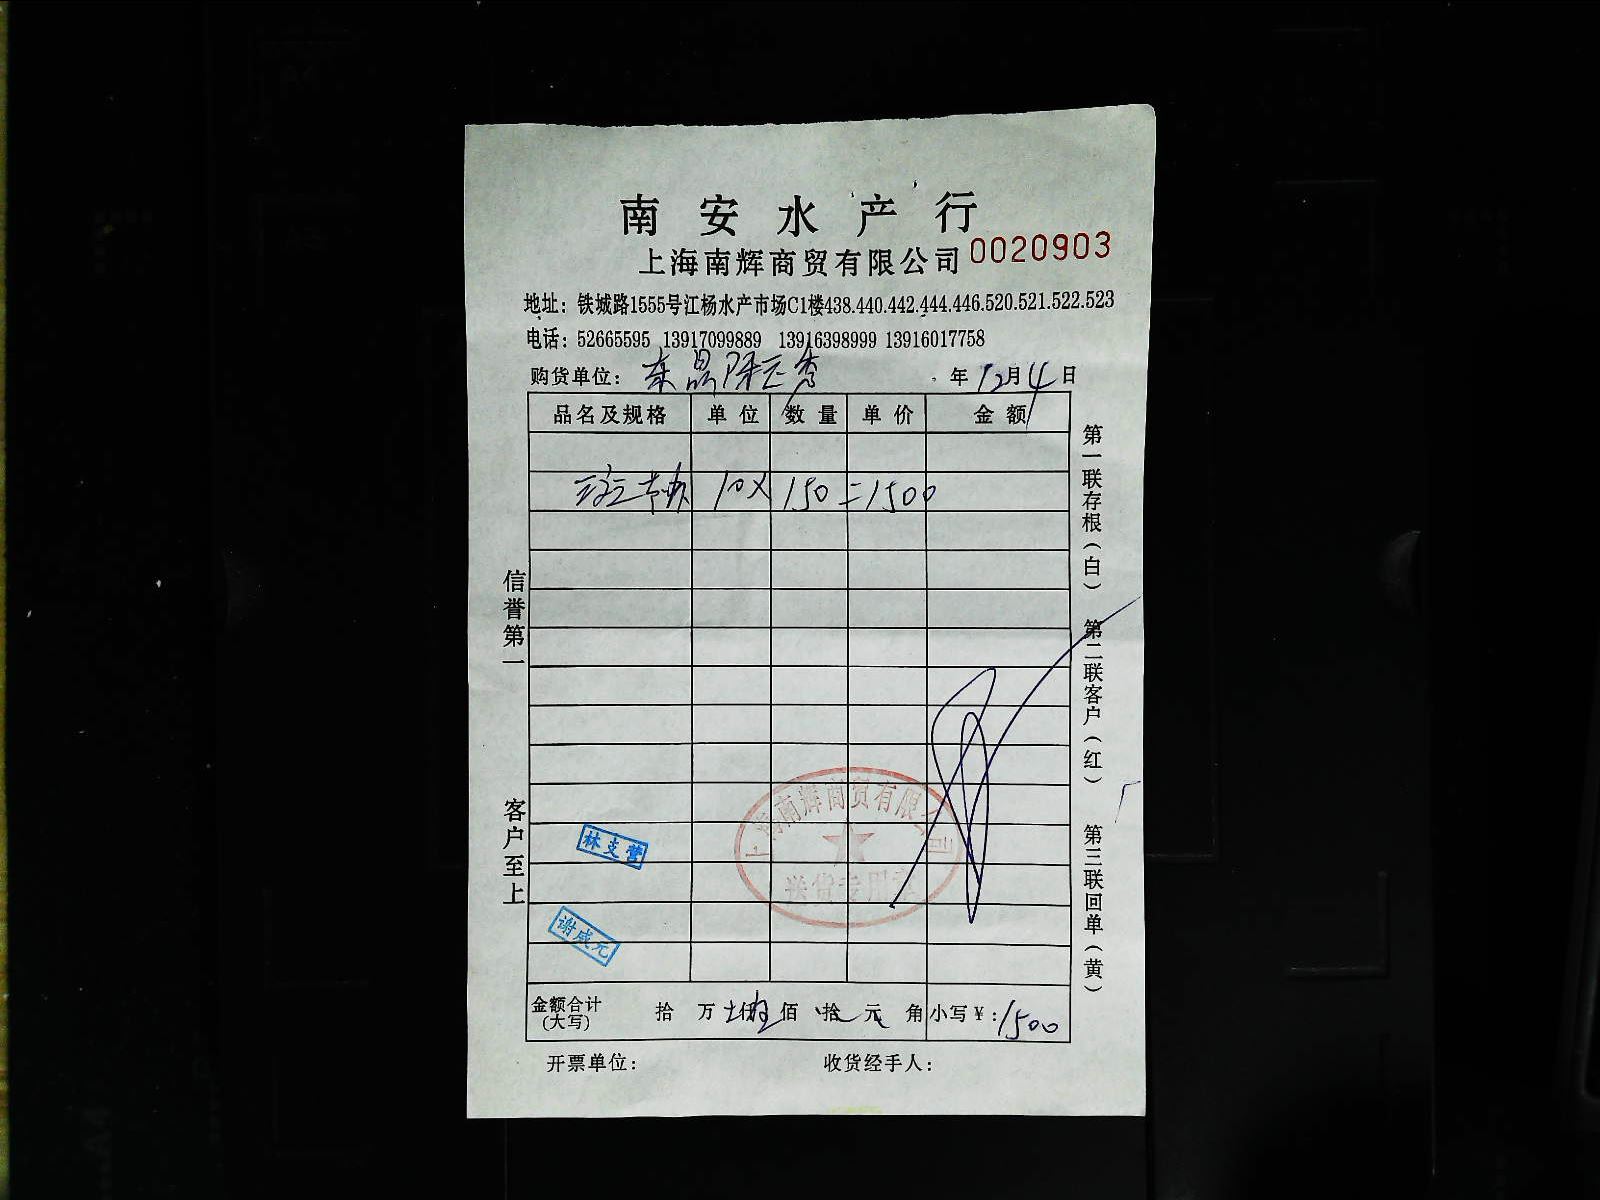 南安水产行
上海南辉商贸有限公司 0020903
地址：铁城路1555号江杨水产市场C1楼438.440.442.444.446.520.521.522.523
电话：52665595 13917099889 13916398999 13916017758
购货单位： 年12月4日
品名及规格 单位 数量 单价 金额
10X 150=1500
信誉第一
客户至上
第一联存根（白） 第二联客户（红） 第三联回单（黄）
上海南辉商贸有限公司
送货专用章
林支营
谢咸元
金额合计(大写) 拾 万 佰 拾 元 角 小写￥：1500
开票单位： 收货经手人：